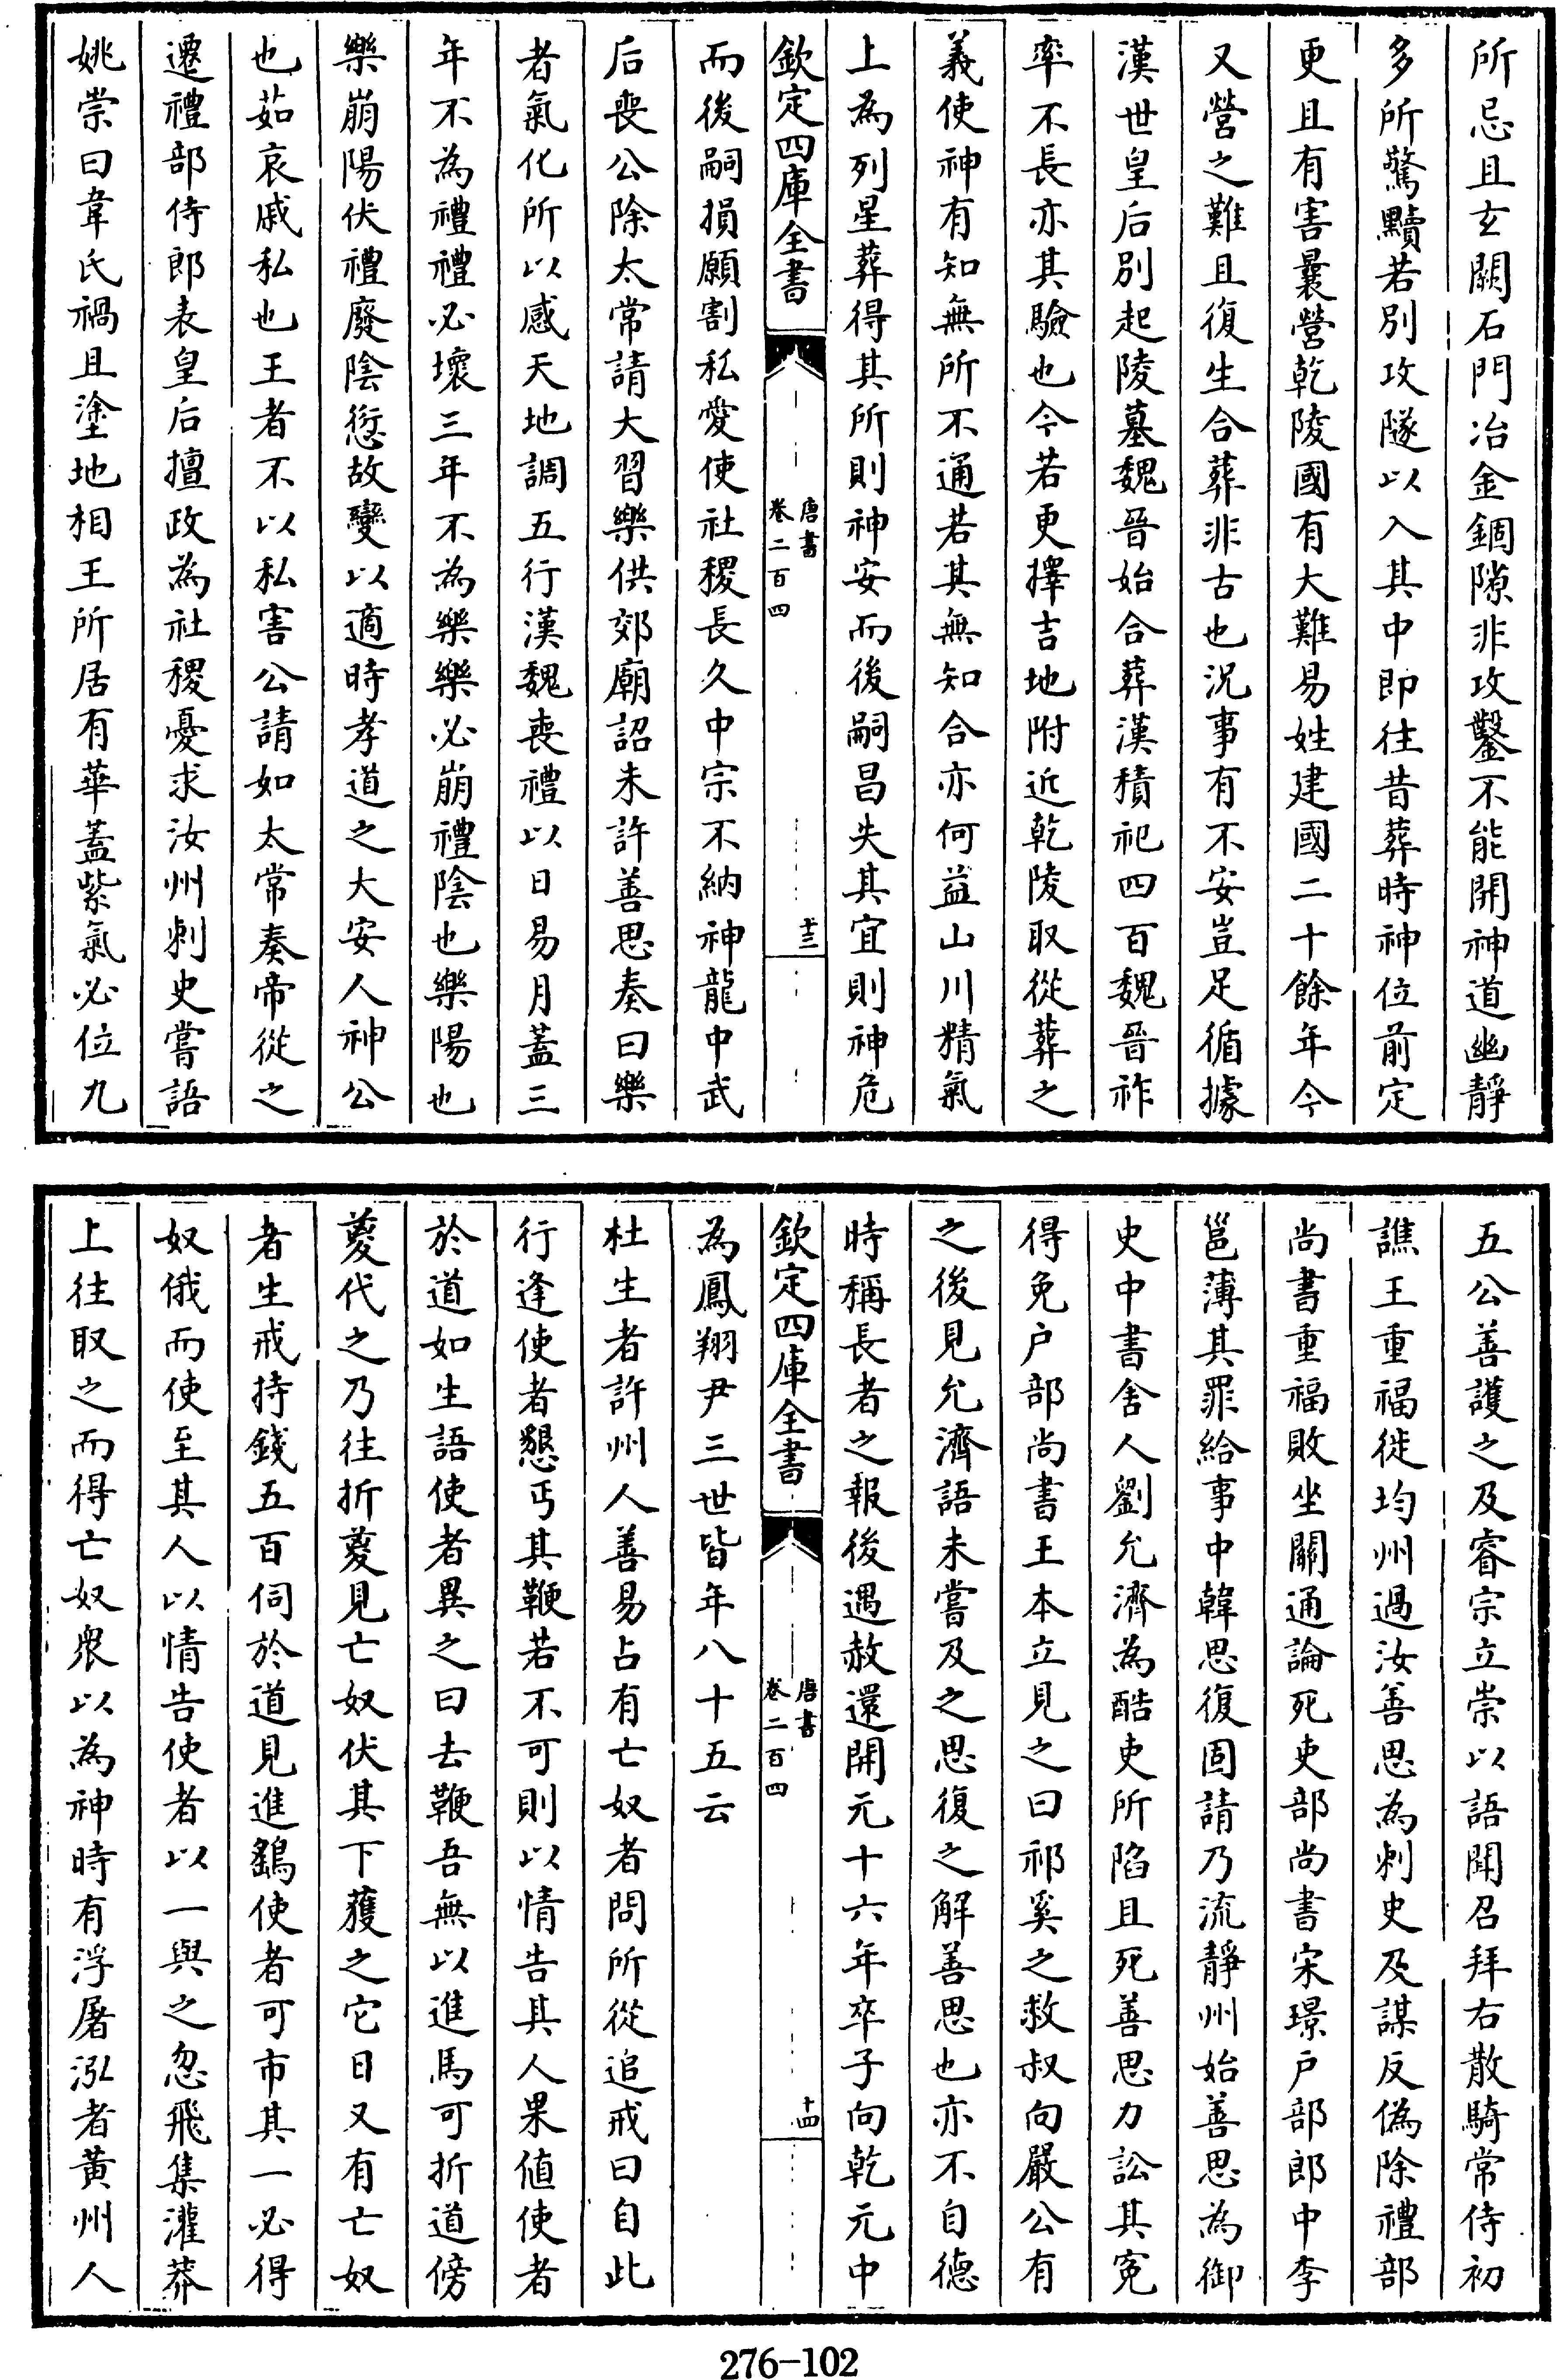 所忌且玄闕石門冶金錮隙非攻鑿不能開神道幽靜
多所驚黷若別攻隧以入其中即往昔葬時神位前定
更且有害曩營乾陵國有大難易姓建國二十餘年今
又營之難且復生合葬非古也況事有不安豈足循據
漢世皇后別起陵墓魏晉始合葬漢積祀四百魏晉祚
率不長亦其驗也今若更擇吉地附近乾陵取從葬之
義使神有知無所不通若其無知合亦何益山川精氣
上為列星葬得其所則神安而後嗣昌失其宜則神危
欽定四庫全書
唐書
卷二百四
十三
而後嗣損願割私愛使社稷長久中宗不納神龍中武
后喪公除太常請大習樂供郊廟詔未許善思奏曰樂
者氣化所以感天地調五行漢魏喪禮以日易月蓋三
年不為禮禮必壞三年不為樂樂必崩禮陰也樂陽也
樂崩陽伏禮廢陰愆故變以適時孝道之大安人神公
也茹哀戚私也王者不以私害公請如太常奏帝從之
遷禮部侍郎表皇后擅政為社稷憂求汝州刺史嘗語
姚崇曰韋氏禍且塗地相王所居有華蓋紫氣必位九
五公善護之及睿宗立崇以語聞召拜右散騎常侍初
譙王重福徙均州過汝善思為刺史及謀反偽除禮部
尚書重福敗坐關通論死吏部尚書宋璟戶部郎中李
邕薄其罪給事中韓思復固請乃流靜州始善思為御
史中書舍人劉允濟為酷吏所陷且死善思力訟其冤
得免戶部尚書王本立見之曰祁奚之救叔向嚴公有
之後見允濟語未嘗及之思復之解善思也亦不自德
時稱長者之報後遇赦還開元十六年卒子向乾元中
欽定四庫全書
唐書
卷二百四
十四
為鳳翔尹三世皆年八十五云
杜生者許州人善易占有亡奴者問所從追戒曰自此
行逢使者懇丐其鞭若不可則以情告其人果値使者
於道如生語使者異之曰去鞭吾無以進馬可折道傍
葼代之乃往折葼見亡奴伏其下獲之它日又有亡奴
者生戒持錢五百伺於道見進鷂使者可市其一必得
奴俄而使至其人以情告使者以一與之忽飛集灌莽
上往取之而得亡奴衆以為神時有浮屠泓者黃州人
276-102